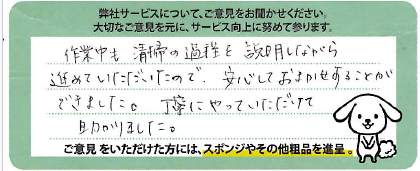 弊社サービスについて、ご意見をお聞かせください。
大切なご意見を元に、サービス向上に努めて参ります。
作業中も 清掃の過程を 説明しながら
進めていただいたので、安心しておまかせすることが
できました。丁寧にやっていただけて
助かりました。
ご意見をいただけた方には、スポンジやその他粗品を進呈。